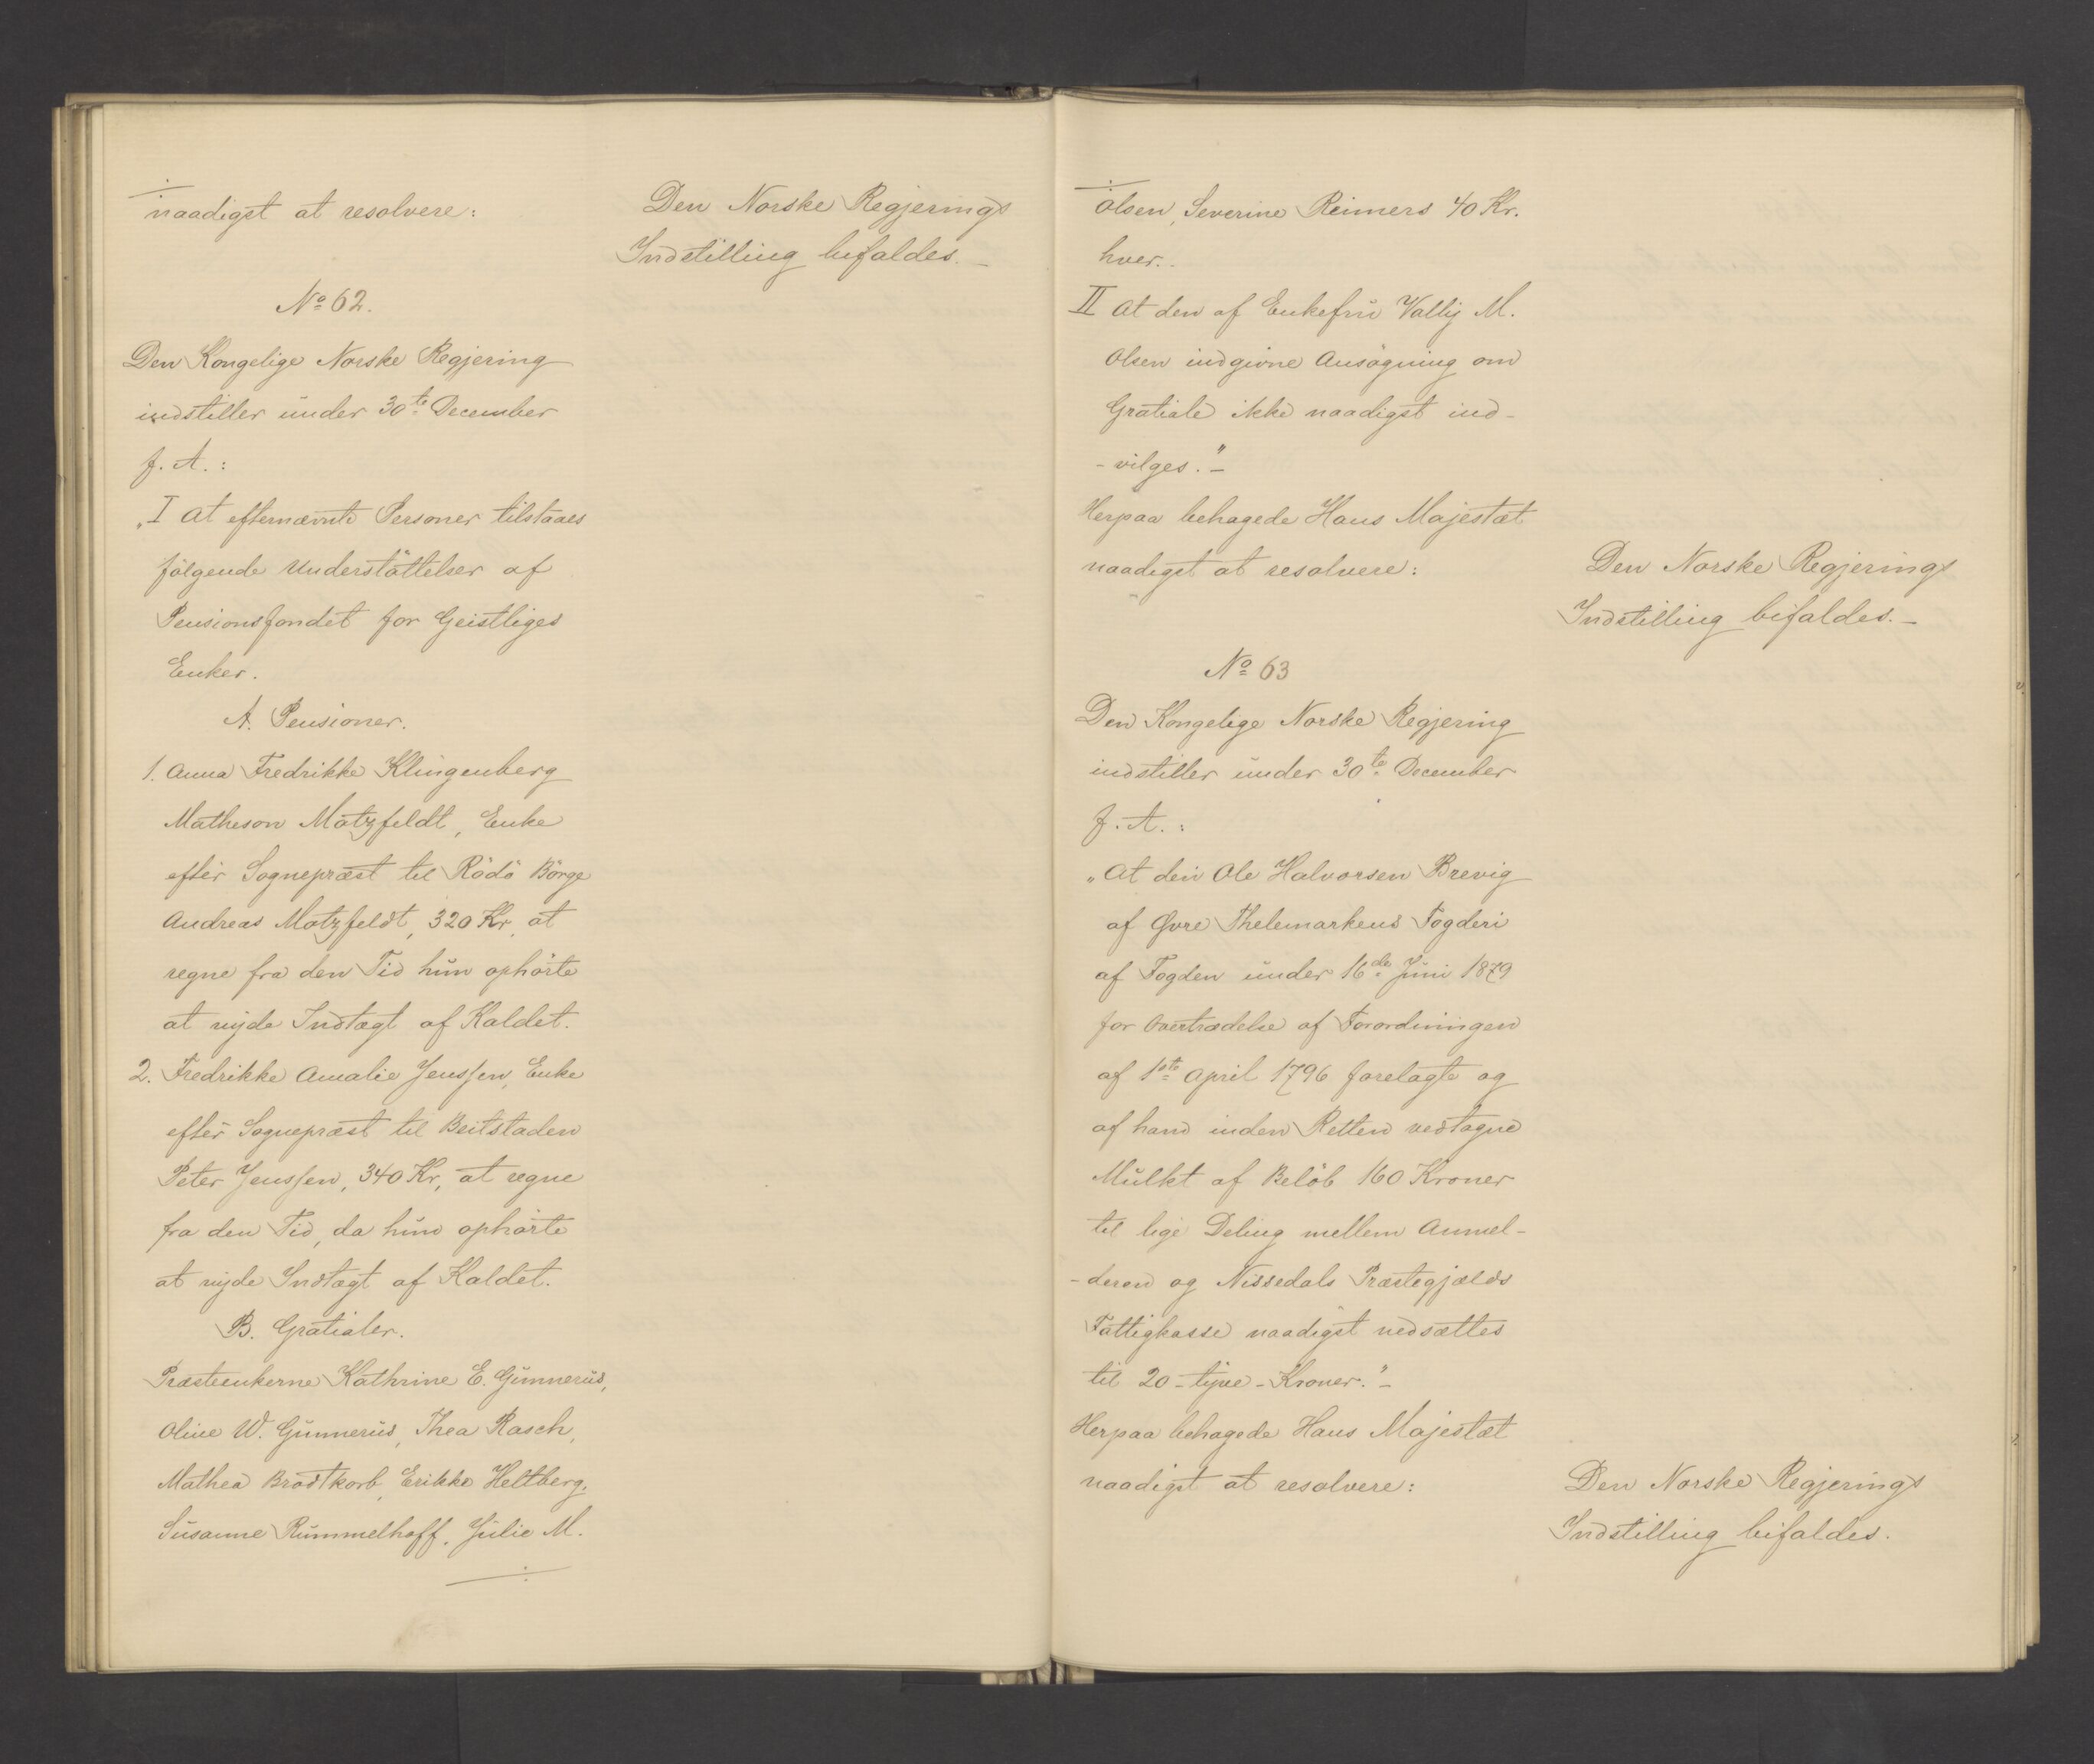 naadigst at resolvere:
Den Norske Regjerings
Indstilling bifaldes.–
No 62.
Den Kongelige Norske Regjering
indstiller under 30te December
f. A.:
„I at efternævnte Personer tilstaaes
følgende Understøttelser af
Pensionsfondet for Geistliges
Enker.
A. Pensioner.
1. Anna Fredrikke Klingenberg
Matheson Motzfeldt, Enke
efter Sognepræst til Rödö Börge
Andreas Motzfeldt, 320 Kr, at
regne fra den Tid hun ophörte
at nyde Indtægt af Kaldet.
2. Fredrikke Amalie Jenssen, Enke
efter Sognepræst til Beitstaden
Peter Jenssen, 340 Kr, at regne
fra den Tid, da hun ophörte
at nyde Indtægt af Kaldet.
B. Gratialer.
Præsteenkerne Kathrine E. Gunnerus,
Oline W. Gunnerus, Thea Rasch,
Mathea Brodtkorb, Erikke Heltberg,
Susanne Rummelhoff, Julie M.
Olsen, Severine Reimers 40 Kr.
hver.
II at den af Enkefru Vally M.
Olsen indgivne Ansögning om
Gratiale ikke naadigst ind-
-vilges."–
Herpaa behagede Hans Majestæt
naadigst at resolvere:
Den Norske Regjerings
Indstilling bifaldes.–
No 63
Den Kongelige Norske Regjering
indstiller under 30te December
f. A.:
„at den Ole Halvorsen Brevig
af Øvre Thelemarkens Fogderi
af Fogden under 16de Juni 1879
for Overtrædelse af Forordningen
af 1ste April 1796 forelagte og
af ham inden Retten vedtagne
Mulkt af Belöb 160 Kroner
til lige Deling mellem Anmel-
-deren og Nissedals Præstegjælds
Fattigkasse naadigst nedsættes
til 20 - tyve - Kroner."–
Herpaa behagede Hans Majestæt
naadigst at resolvere:
Den Norske Regjerings
Indstilling bifaldes.